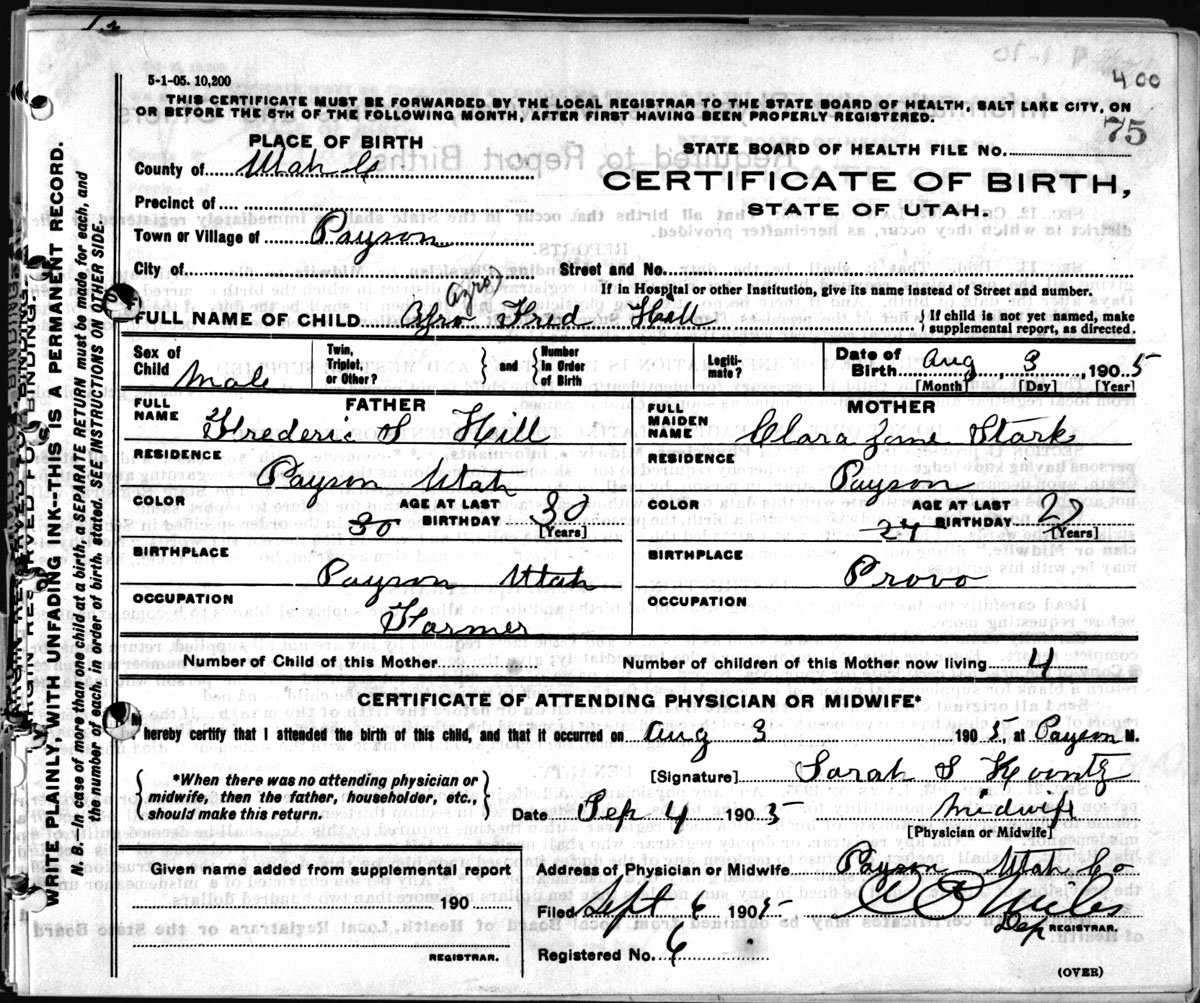 5-1-05. 10,200
400
THIS CERTIFICATE MUST BE FORWARDED BY THE LOCAL REGISTRAR TO THE STATE BOARD OF HEALTH, SALT LAKE CITY, ON
OR BEFORE THE 5TH OF THE FOLLOWING MONTH, AFTER FIRST HAVING BEEN PROPERLY REGISTERED.
75
PLACE OF BIRTH
STATE BOARD OF HEALTH FILE No.
County of Utah Co
CERTIFICATE OF BIRTH,
Precinct of
STATE OF UTAH.
Town or Village of Payson
City of
Street and No.
If in Hospital or other Institution, give its name instead of Street and number.
Afro
FULL NAME OF CHILD Afro Fred Hill
{ If child is not yet named, make
supplemental report, as directed.
Sex of Child Male
Twin, Triplet, or Other?
and
Number in Order of Birth
Legiti- mate?
Date of Birth Aug 3, 1905
[Month] [Day] [Year]
FATHER
FULL NAME
Frederic S Hill
MOTHER
FULL MAIDEN NAME
Clara Jane Stark
RESIDENCE
Payson Utah
RESIDENCE
Payson
COLOR
AGE AT LAST BIRTHDAY 30
30
[Years]
COLOR
AGE AT LAST BIRTHDAY 27
27
[Years]
BIRTHPLACE
Payson Utah
BIRTHPLACE
Provo
OCCUPATION
Farmer
OCCUPATION
Number of Child of this Mother
Number of children of this Mother now living 4
CERTIFICATE OF ATTENDING PHYSICIAN OR MIDWIFE*
I hereby certify that I attended the birth of this child, and that it occurred on Aug 3 1905, at Payson M.
*When there was no attending physician or
midwife, then the father, householder, etc.,
should make this return.
[Signature] Sarah S Koontz
Date Sep 4 1905
Midwife
[Physician or Midwife]
Given name added from supplemental report
190
REGISTRAR.
Address of Physician or Midwife Payson Utah Co
Filed Sept 6 1905
Dep REGISTRAR.
Registered No. 6
(OVER)
WRITE PLAINLY, WITH UNFADING INK--THIS IS PERMANENT RECORD.
N. B.—In case of more than one child at a birth, a SEPARATE RETURN must be made for each, and
the number of each, in order of birth, stated. SEE INSTRUCTIONS ON OTHER SIDE.